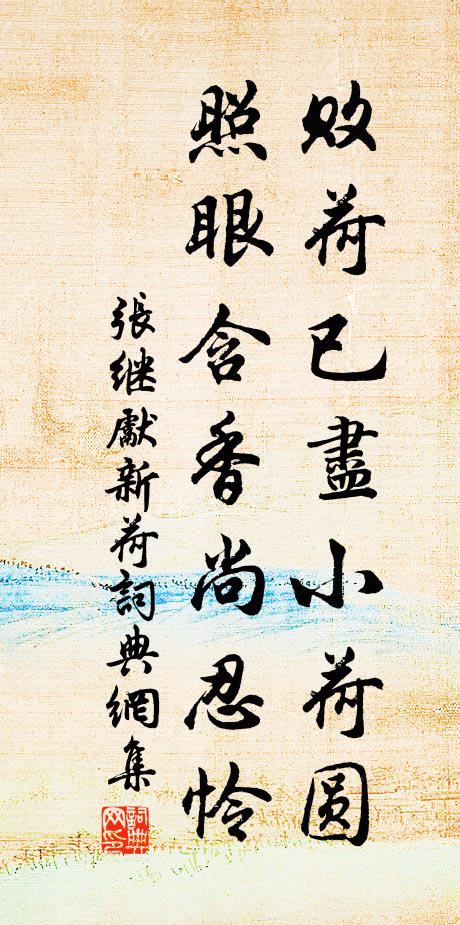 敗荷已盡小荷圓
照眼含香尚忍怜
張继獻新荷詞典網集
詞典网印